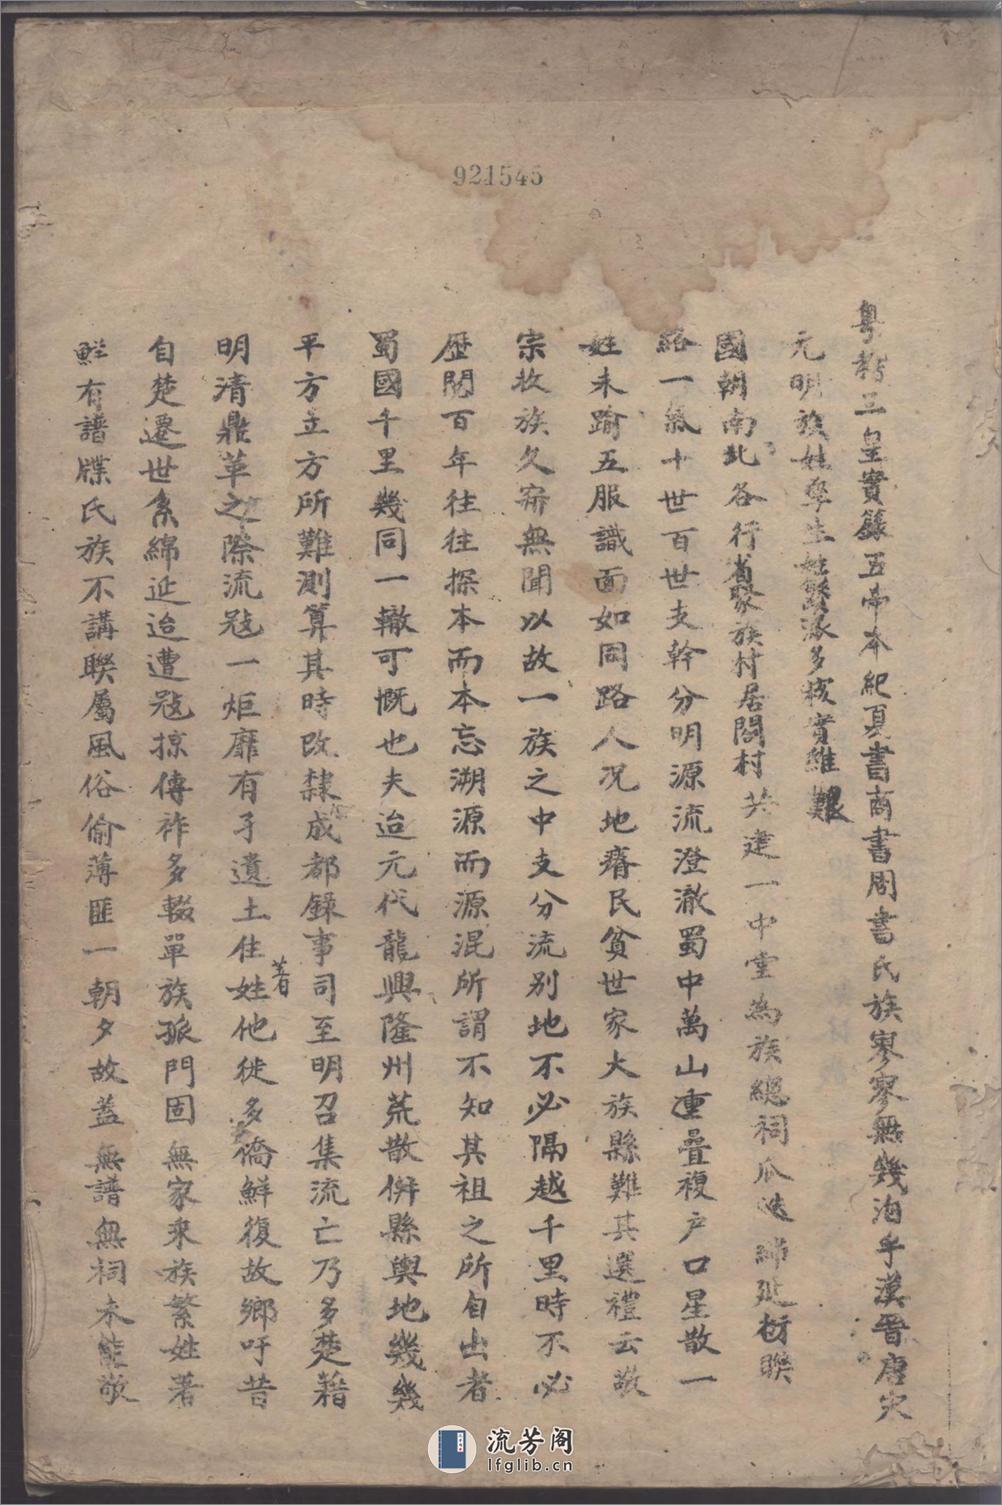 921545
粵稽三皇實錄五帝本紀夏書商書周書氏族寥寥無幾洎乎漢晉唐宋
元明族姓孳生姓繁派多核實維艱
國朝南北各行省聚族村居閤村共建一中堂為族總祠瓜迭綿延衍聯
絡一氣十世百世支幹分明源流澄澈蜀中萬山重疊複户口星散一
姓未踰五服識面如同路人况地瘠民貧世家大族縣難其選禮云敬
宗收族久寤無聞以故一族之中支分流别地不必隔越千里時不必
歷閱百年往往探本而本忘溯源而源混所謂不知其祖之所自出者
蜀國千里幾同一轍可慨也夫迨元代龍興隆州荒散併縣輿地幾幾
平方立方所難測算其時改隸成都錄事司至明召集流亡乃多楚籍
明清鼎革之際流寇一炬靡有孑遺土住姓著他徙多僑鮮復故鄉吁昔
自楚遷世系綿延迨遭寇掠傳祚多輟單族孤門固無家来族繁姓著
鮮有譜牒氏族不講聯屬風俗偷薄匪一朝夕故蓋無譜無祠未能敬
流芳阁
lfglib.cn